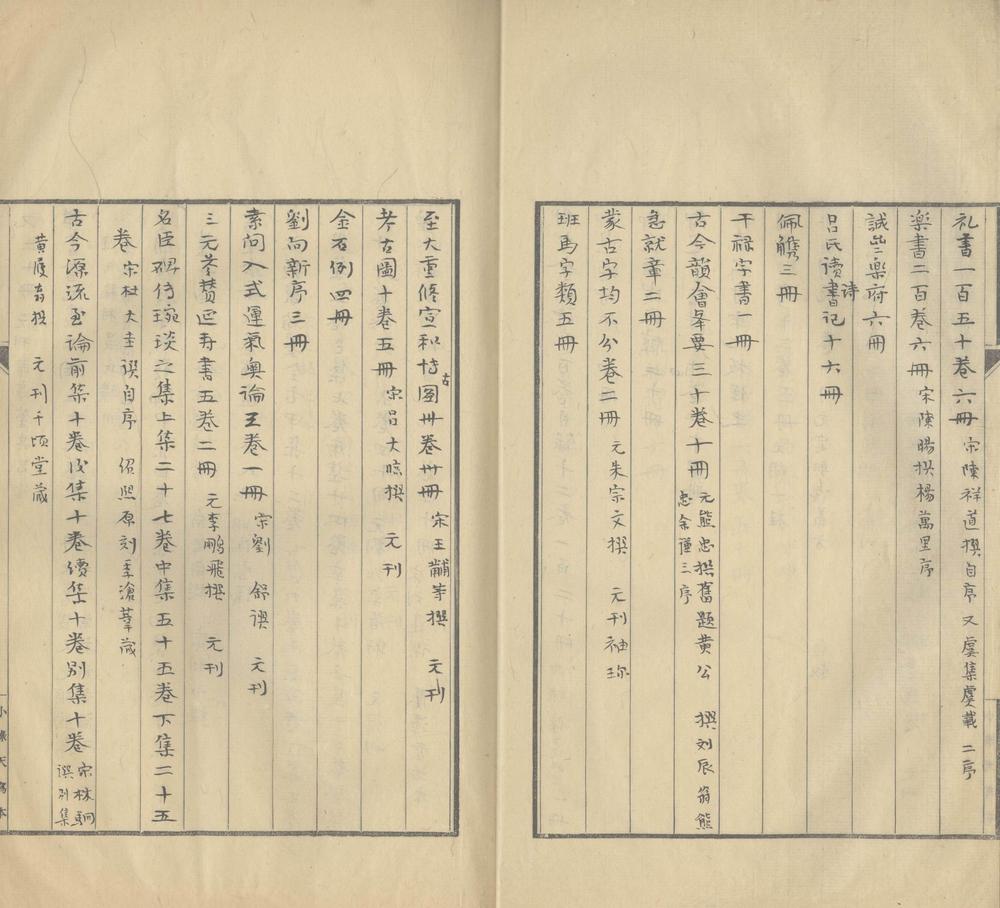 礼書一百五十卷六冊 宋陳祥道撰自序又虞集虞載二序
楽書二百卷六冊 宋陳暘撰楊萬里序
誠斎楽府六冊
吕氏讀詩書記十六冊
佩觹三冊
干禄字書一冊
古今韻會举要三十卷十冊 元熊忠撰舊題黄公 撰刘辰翁熊
忠余謹三序
急就章二冊
蒙古字均不分卷二冊 元朱宗文撰 元刊袖珎
班馬字類五冊
至大重修宣和博古图卅卷卅冊 宋王黼等撰 元刊
考古圖十卷五冊 宋吕大临撰 元刊
金石例四冊
劉向新序三冊
素问入式運氣奥論王卷一冊 宋劉 舒撰 元刊
三元参賛延寿書五卷二冊 元李鹏飛撰 元刊
名臣碑传琬琰之集上集二十七卷中集五十五卷下集二十五
卷 宋杜大圭撰自序 绍熙原刻季滄葦蔵
古今源流至論前集十卷後集十卷續集十卷别集十卷 宋林駉
撰别集
黄履翁撰 元刊千顷堂蔵
小綠天寫本